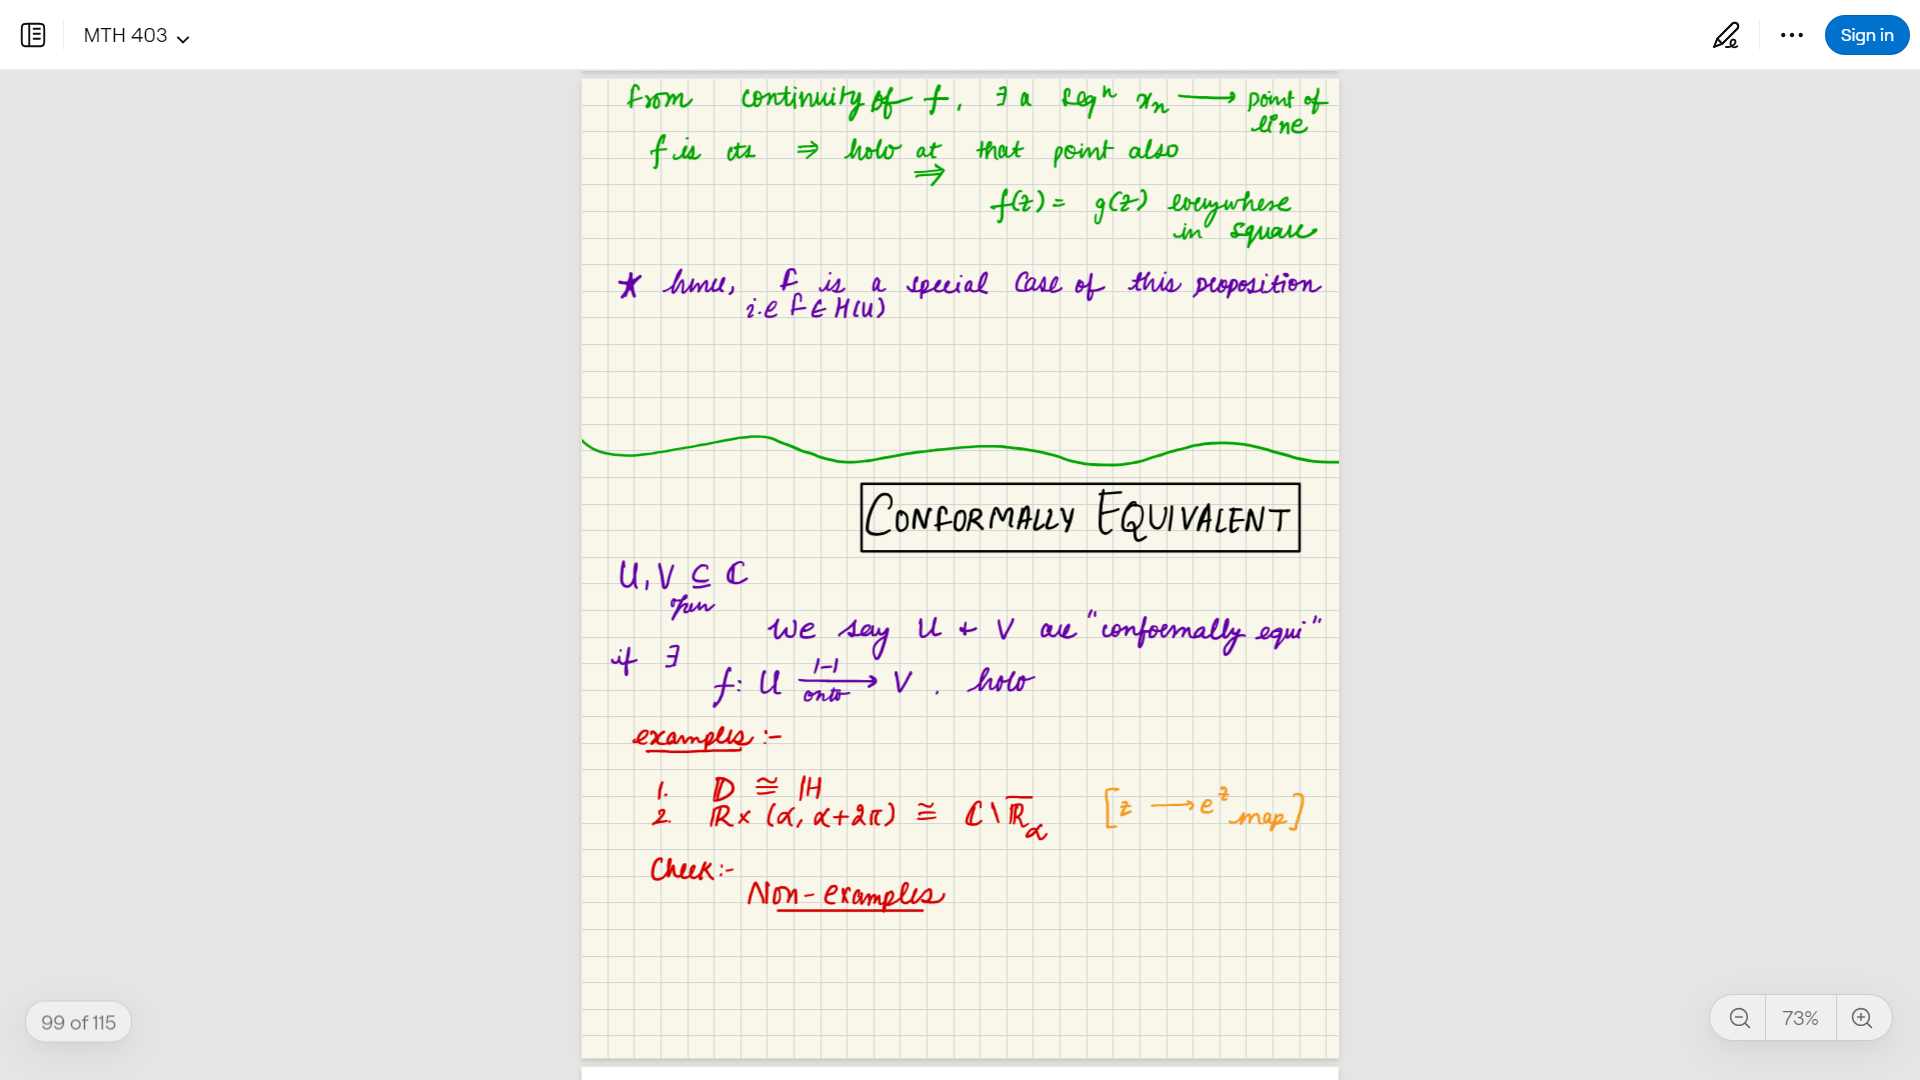 MTH 403
Sign in
from continuity of f, ∃ a seqⁿ xₙ ⟶ point of
line
f is cts ⇒ holo at that point also
⇒
f(z) = g(z) everywhere
in square
★ hence, f is a special case of this proposition
i.e f ∈ H(U)
CONFORMALLY EQUIVALENT
U, V ⊆ ℂ
open
We say U + V are "conformally equi"
if ∃
f: U 1-1 ⟶ onto V . holo
examples :-
1. 𝔻 ≅ ℍ
2. ℝ × (α, α+2π) ≅ ℂ \ ℝ̅_α [z ⟶ e^z map]
Check :-
Non-examples
99 of 115
73%